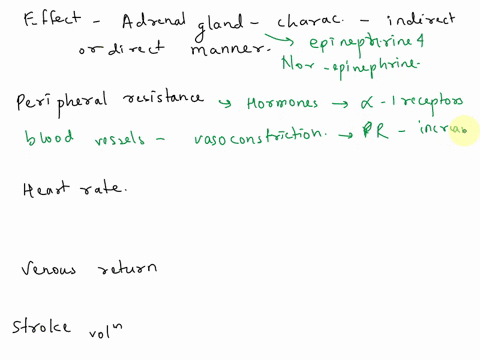 Effect - Adrenal gland - charac. - indirect
or direct manner. → epinephrine &
Nor-epinephrine
Peripheral resistance → Hormones → α-1 receptors
blood vessels - vasoconstriction. → PR - increas
Heart rate.
Venous return
Stroke volⁿ